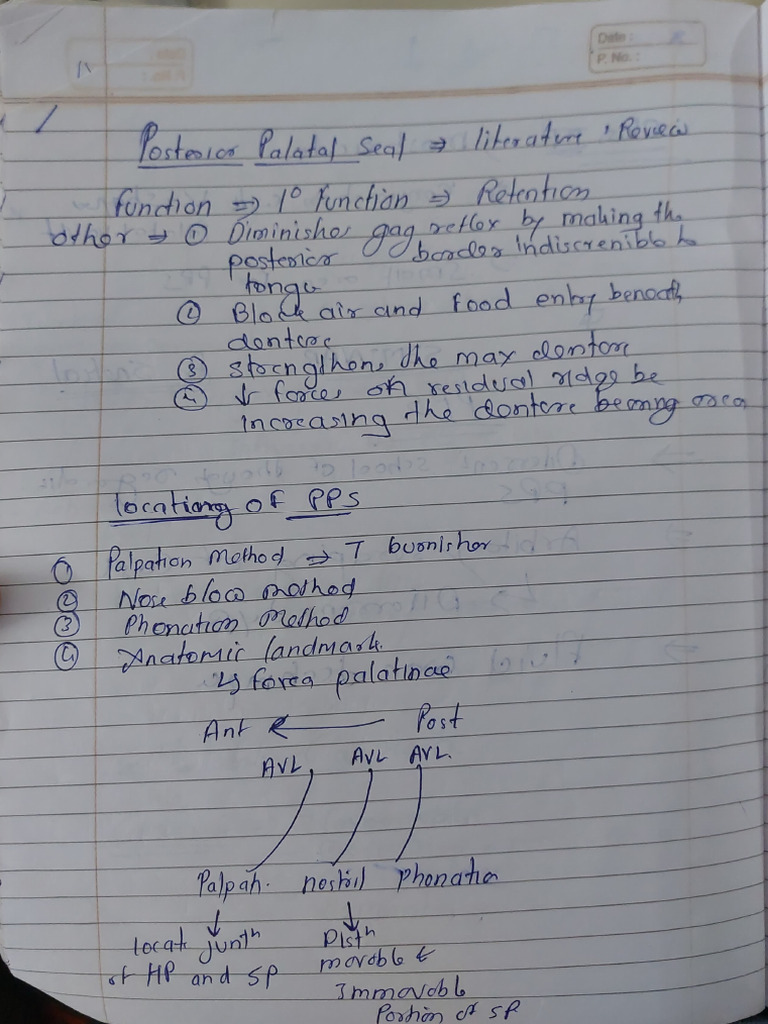 Date :
P. No. :
Posterior Palatal Seal ⇒ literature Review
function ⇒ 1° function ⇒ Retention
other ⇒ ① Diminishes gag reflex by making the
posterior border indiscrenible to
tongue
② Block air and food entry beneath
denture
③ strengthens the max denture
④ ↓ forces on residual ridge be
increasing the denture bearing area
locationg of PPS
① Palpation Method ⇒ T burnisher
② Nose blow method
③ Phonation Method
④ Anatomic landmark.
↳ fovea palatinae
Ant ← Post
AVL AVL AVL.
Palpatn. nostril Phonation
↓ ↓
locat juntn Distn
of HP and SP movable &
Immovable
Portion of SP